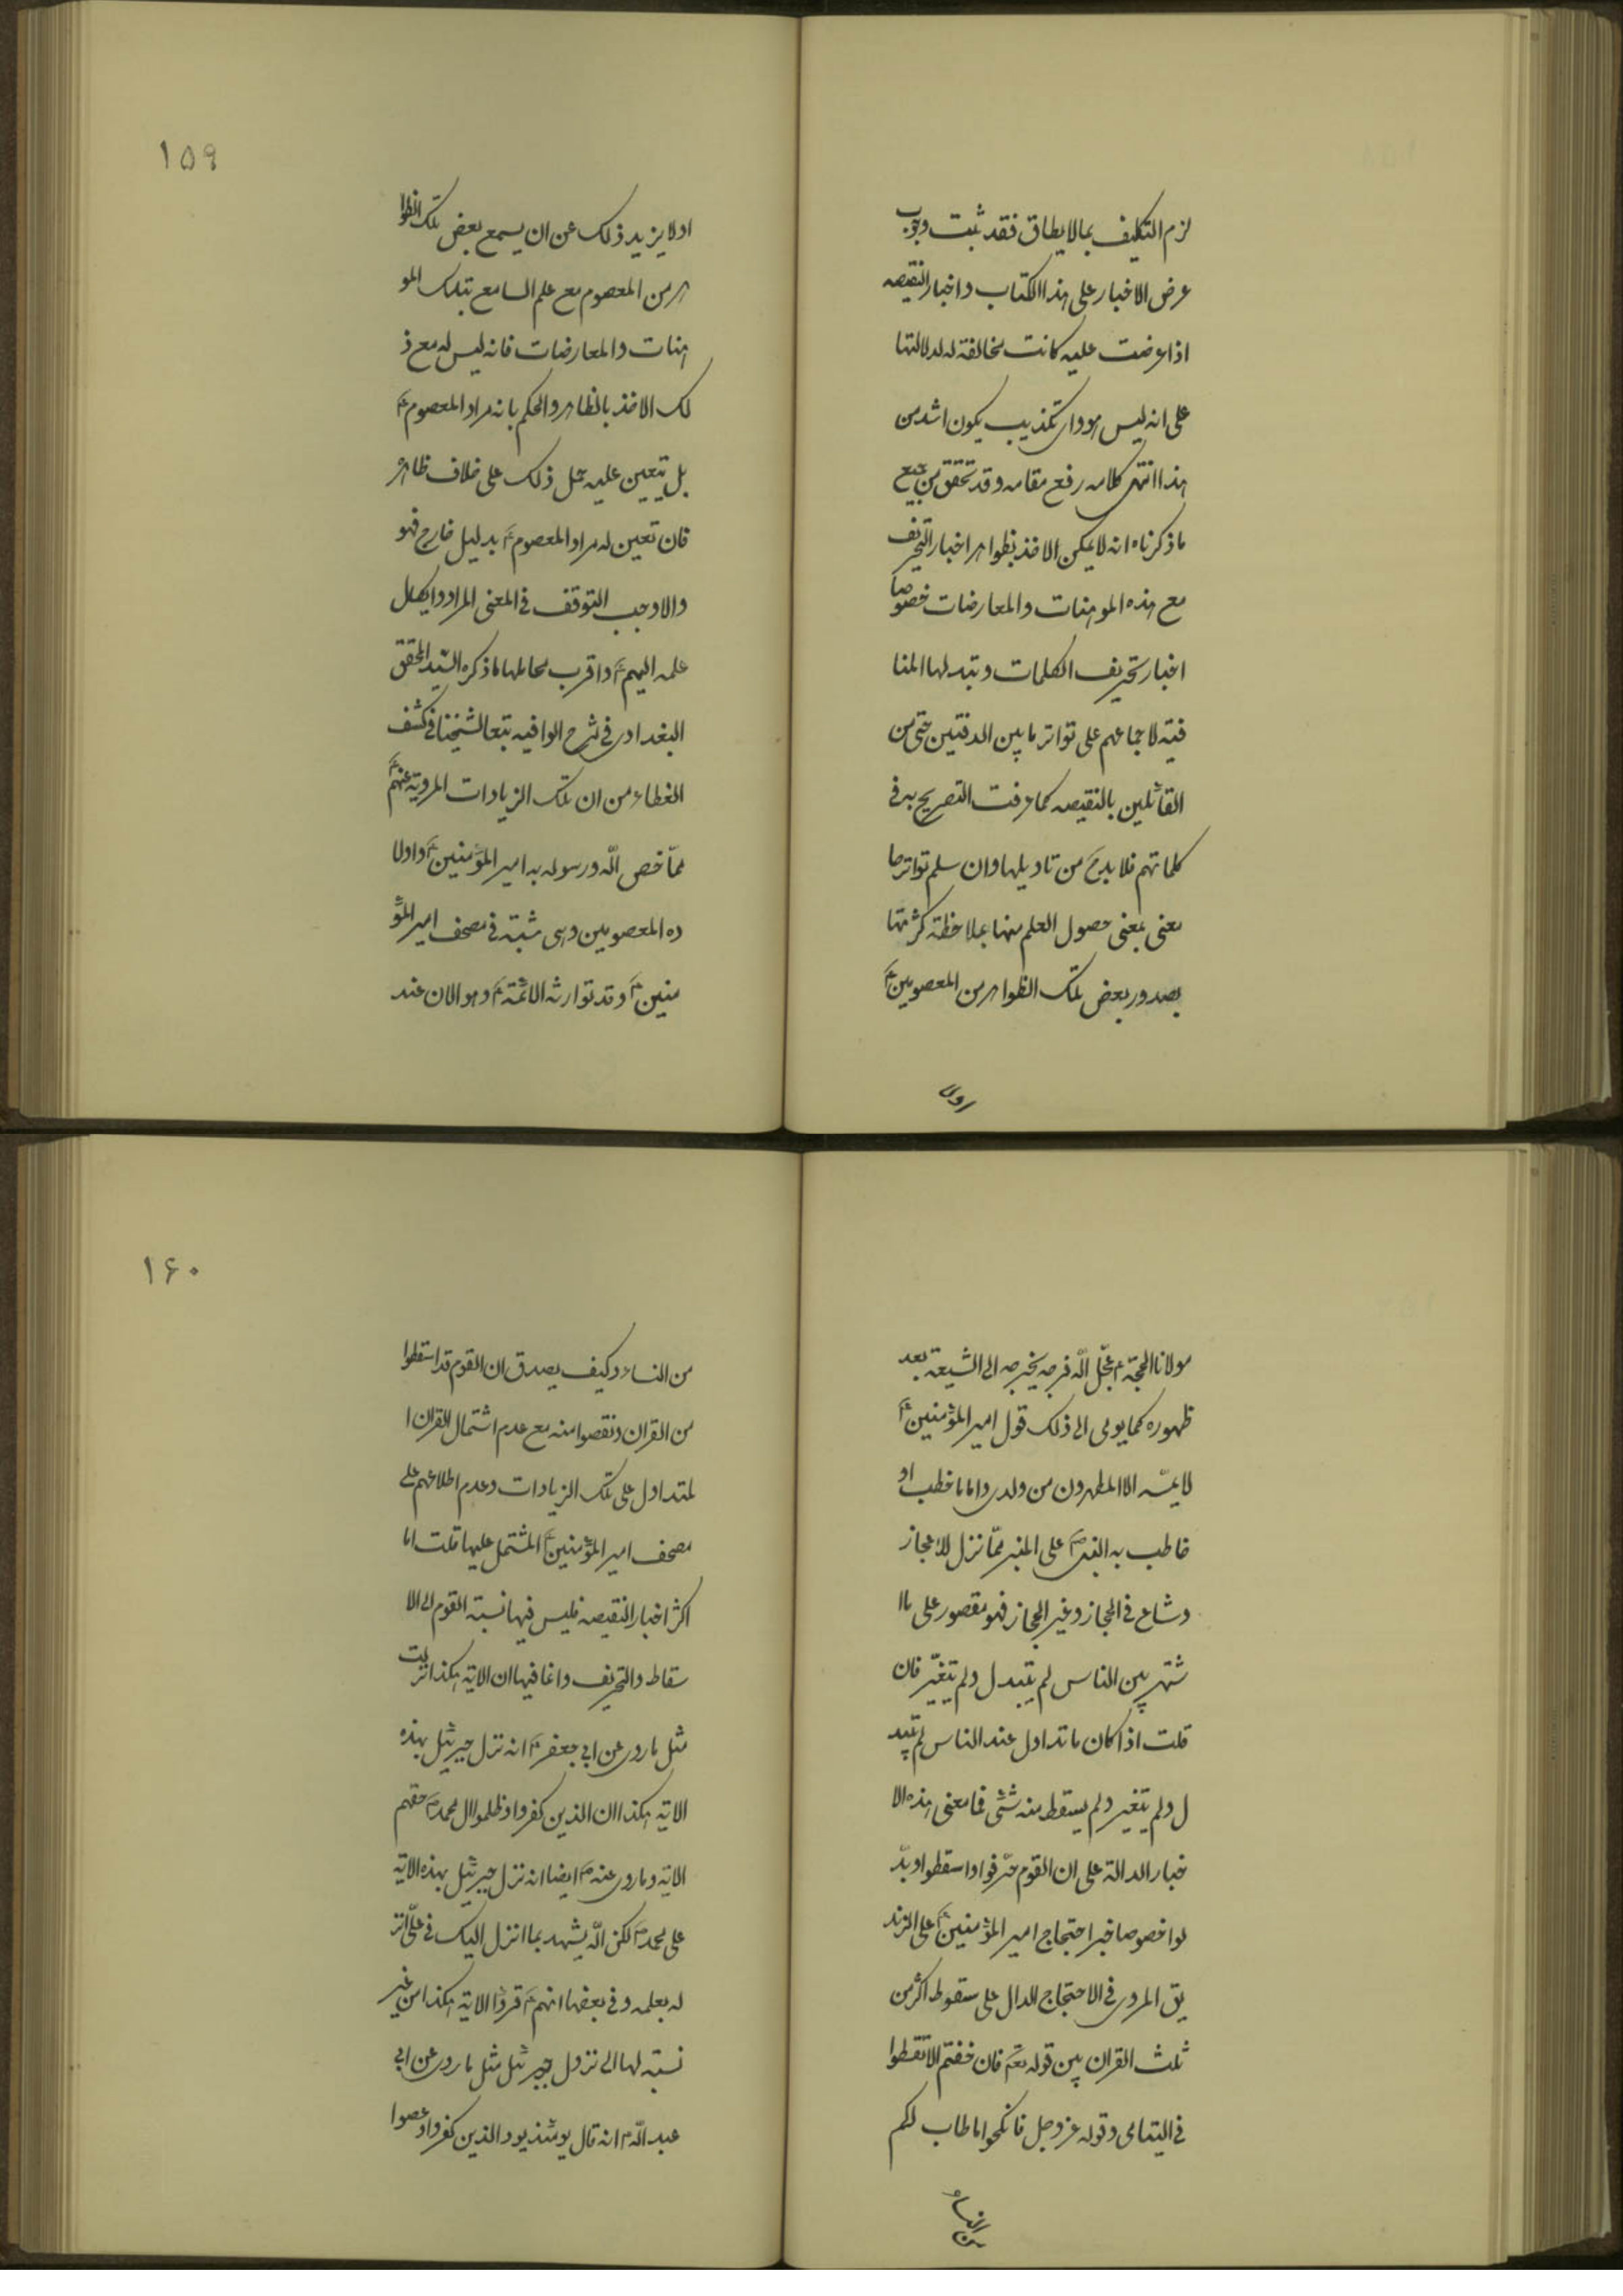 لزم التكليف بما لا يطاق فقد ثبت وجوب
عرض الاخبار على هذا الكتاب واخبار النقيصه
اذا عرضت عليه كانت مخالفة له لدلالتها
على انه ليس هو واى تكذيب يكون اشد من
هذا انتهى كلامه رفع مقامه وقد تحقق من جميع
ما ذكرناه انه لا يمكن الاخذ بظواهر اخبار التحريف
مع هذه الموهنات والمعارضات خصوصا
اخبار تحريف الكلمات وتبدلها المنا
فية لاجماعهم على تواتر ما بين الدفتين حتى من
القائلين بالنقيصه كما عرفت التصريح به فى
كلماتهم فلا بد ح من تاويلها وان سلم تواترها
معنى بمعنى حصول العلم منها بملاحظة كثرتها
بصدور بعض تلك الظواهر من المعصومين ع
اولا
١٥٩
اولا يزيد ذلك عن ان يسمع بعض تلك الظوا
هر من المعصوم مع علم السامع بتلك المو
هنات والمعارضات فانه ليس له مع ذ
لك الاخذ بالظاهر والحكم بانه مراد المعصوم ع
بل يتعين عليه حمل ذلك على خلاف ظاهره
فان تعين له مراد المعصوم ع بدليل خارج فهو
والا وجب التوقف فى المعنى المراد وايكال
علمه اليهم ع واقرب محاملها ما ذكره السّيد المحقق
البغدادى فى شرح الوافيه تبعا لشيخنا فى كشف
الغطاء من ان تلك الزيادات المروية عنهم ع
ممّا خص اللّه ورسوله به امير المؤمنين ع واولا
ده المعصومين وهى مثبتة فى مصحف امير المؤ
منين ع وقد توارثه الائمة ع وهو الان عند
مولانا الحجة ع عجّل اللّه فرجه يخرجه الى الشيعة بعد
ظهوره كما يومى الى ذلك قول امير المؤمنين ع
لا يمسّه الا المطهرون من ولدى واما ما خطب او
خاطب به النبى ص على المنبر ممّا نزل للاعجاز
وشاع فى الحجاز وغير الحجاز فهو مقصور على ما ا
شتهر بين الناس لم يتبدل ولم يتغيّر فان
قلت اذا كان ما تداول عند الناس لم يتبد
ل ولم يتغير ولم يسقط منه شئ فما معنى هذه الا
خبار الدالة على ان القوم حرّفوا واسقطوا وبدّ
لوا خصوصا خبر احتجاج امير المؤمنين ع على الزند
يق المروى فى الاحتجاج الدال على سقوط اكثر من
ثلث القران بين قوله تع فان خفتم الا تقسطوا
فى اليتامى وقوله عز وجل فانكحوا ما طاب لكم
من النساء
١۶٠
من النساء وكيف يصدق ان القوم قد اسقطوا
من القران ونقصوا منه مع عدم اشتمال القران ا
لمتداول على تلك الزيادات وعدم اطلاعهم على
مصحف امير المؤمنين ع المشتمل عليها قلت اما
اكثر اخبار النقيصه فليس فيها نسبة القوم الى الا
سقاط والتحريف وانما فيها ان الاية هكذا نزلت
مثل ما روى عن ابى جعفر ع انه نزل جبرئيل بهذه
الاية هكذا ان الذين كفروا وظلموا ال محمد ص حقهم
الاية وما روى عنه ع ايضا انه نزل جبرئيل بهذه الاية
على محمد ص لكن اللّه يشهد بما انزل اليك فى علىّ انز
له بعلمه وفى بعضها انهم ع قرؤا الاية هكذا من غير
نسبة لها الى نزول جبرئيل مثل ما روى عن ابى
عبد اللّه ع انه قال يومئذ يود الذين كفروا وعصوا